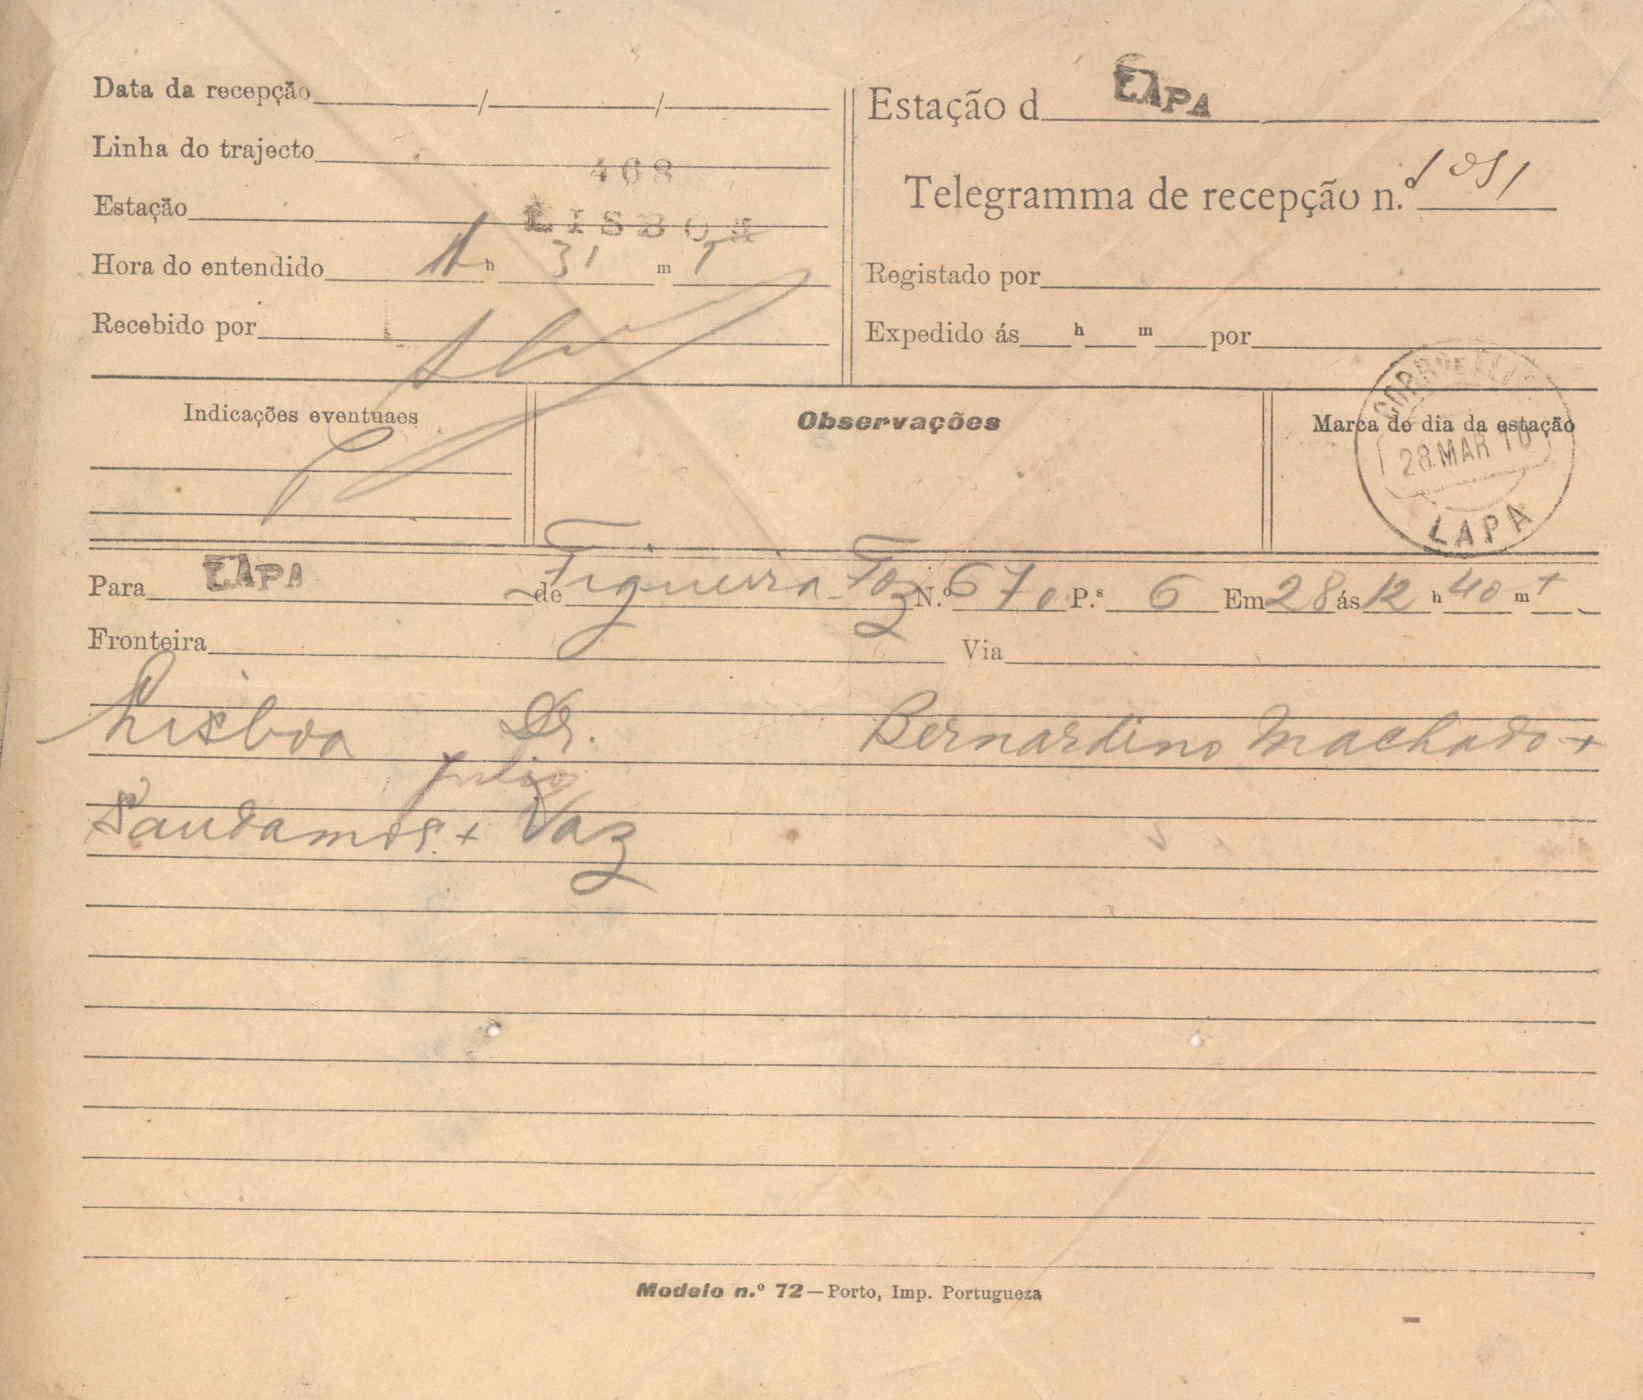 Data da recepção / /
Linha do trajecto
408
Estação LISBOA
Hora do entendido h 31 m T
Recebido por
Estação d LAPA
Telegramma de recepção n.º 1091
Registado por
Expedido ás h m por
Indicações eventuaes
Observações
Marca do dia da estação
28 MAR 10
LAPA
Para LAPA de Figueira Foz N.º 670 P.s 6 Em 28 ás 12 h 40 m +
Fronteira Via
Lisboa Dr. Bernardino Machado +
Julio
Saudamos + Vaz
Modelo n.º 72 — Porto, Imp. Portugueza